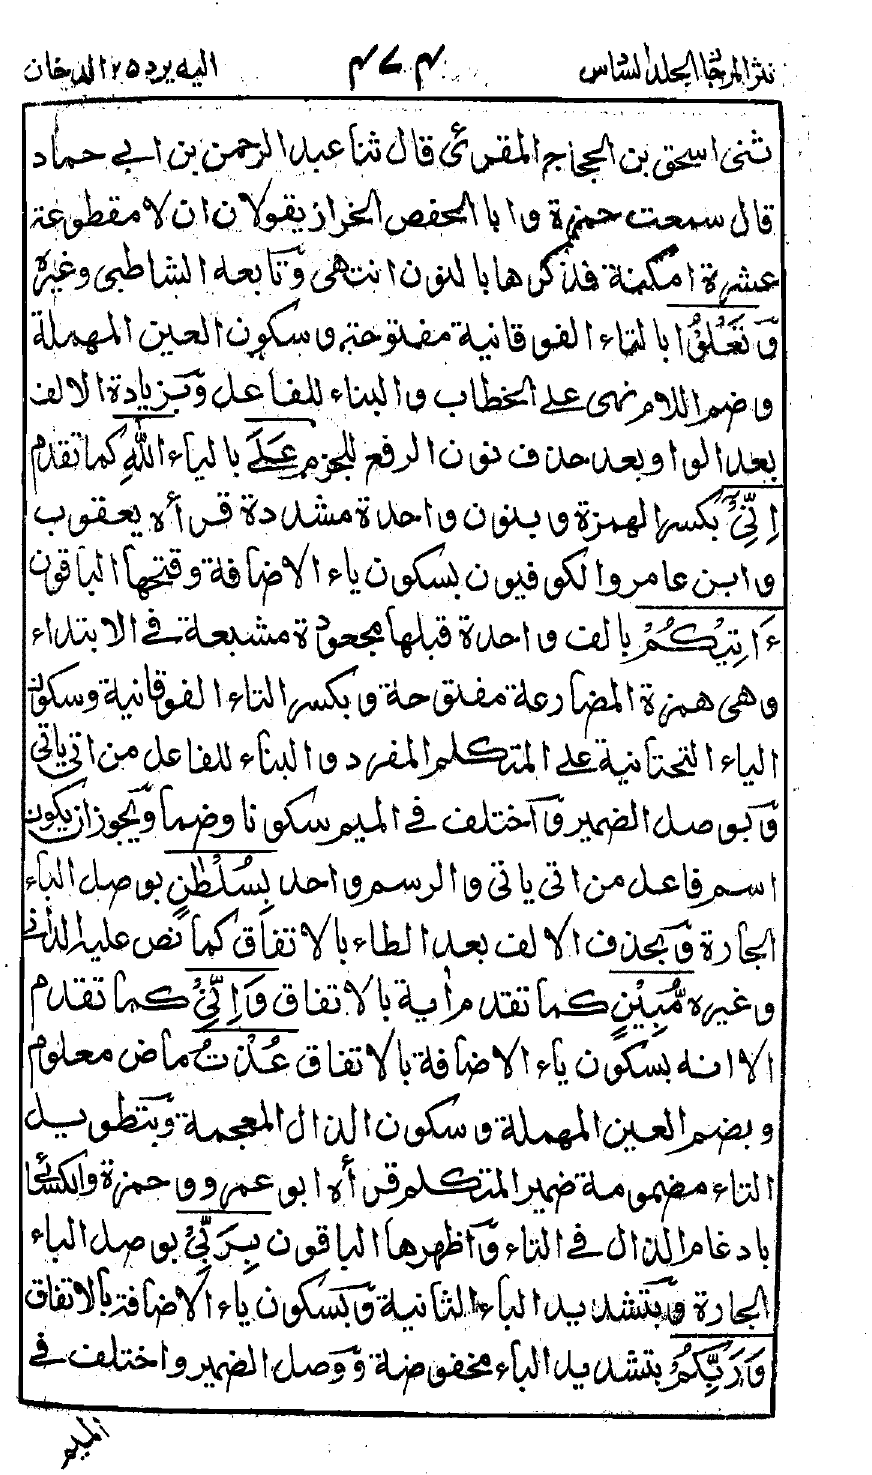 نثر المرجان الجلد السادس ٤٧٤ اليه يرد ٢٥ الدخان
ثنى اسحق بن الحجاج المقرئ قال ثنا عبد الرحمن بن ابي حماد
قال سمعت حمزة و ابا الحفص الخراز يقولان ان لا مقطوعة
عشرة امكنة فذكرها بالنون انتهى وتابعه الشاطبى وغيره
وَّتَعْلُوْا بالتاء الفوقانية مفتوحة وسكون العين المهملة
وضم اللام نهى على الخطاب والبناء للفاعل وبزيادة الالف
بعد الواو بعد حذف نون الرفع للجزم عَلَى بالياء اللهِ كما تقدم
اِنِّىْ بكسر الهمزة وبنون واحدة مشددة قرأه يعقوب
وابن عامر والكوفيون بسكون ياء الاضافة وفتحها الباقون
ءَاتِيْكُمْ بالف واحدة قبلها مجعودة مشبعة في الابتداء
وهى همزة المضارعة مفتوحة وبكسر التاء الفوقانية وسكون
الياء التحتانية على المتكلم المفرد والبناء للفاعل من اتى ياتى
وبوصل الضمير واختلف في الميم سكونا وضما ويجوز ان يكون
اسم فاعل من اتى ياتى والرسم واحد بِسُلْطٰنٍ بوصل الباء
الجارة وبحذف الالف بعد الطاء بالاتفاق كما نص عليه الدانى
وغيره مُّبِيْنٍ كما تقدم أية بالاتفاق وَاِنِّىْ كما تقدم
الا انه بسكون ياء الاضافة بالاتفاق عُذْتُ ماض معلوم
وبضم العين المهملة وسكون الذال المعجمة وبتطويل
التاء مضمومة ضمير المتكلم قرأه ابو عمرو وحمزة والكسائى
بادغام الذال في التاء واظهرها الباقون بِرَبِّىْ بوصل الباء
الجارة وبتشديد الباء الثانية وبسكون ياء الاضافة بالاتفاق
وَرَبِّكُمْ بتشديد الباء مخفوضة ووصل الضمير واختلف في
الميم